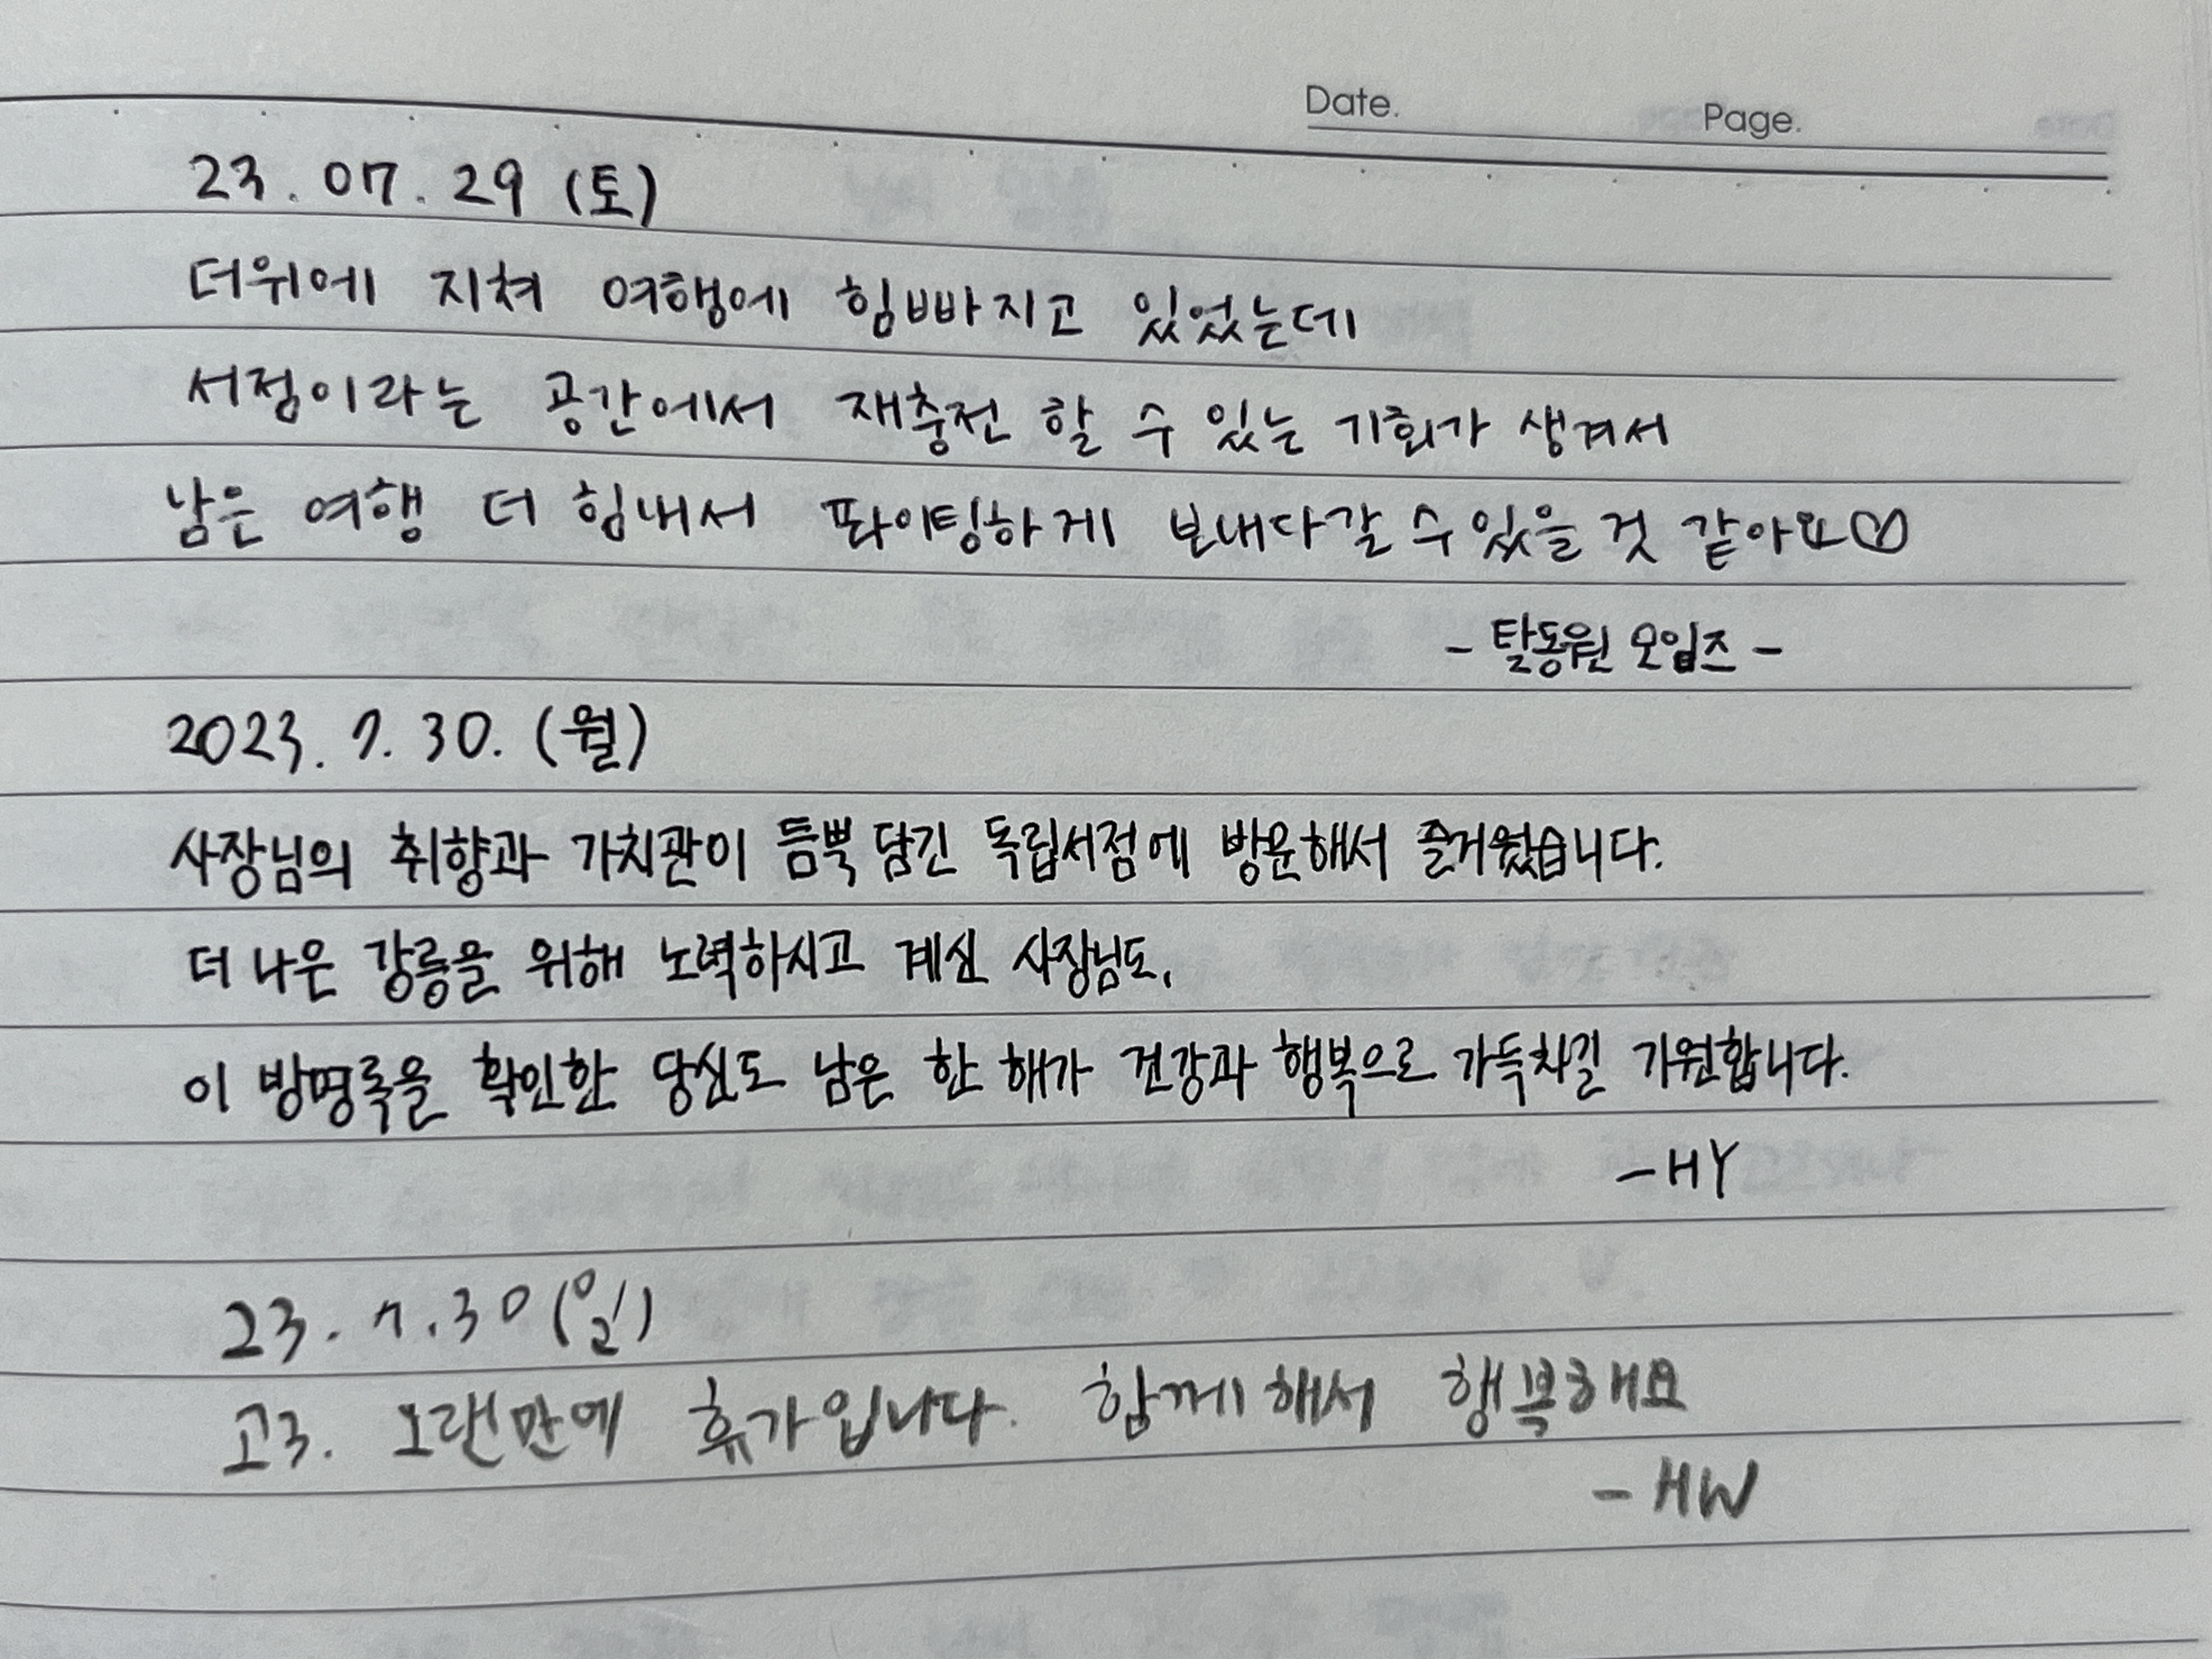 Date. Page.
23. 07. 29 (토)
더위에 지쳐 여행에 힘빠지고 있었는데
서점이라는 공간에서 재충전 할 수 있는 기회가 생겨서
남은 여행 더 힘내서 파이팅하게 보내다갈 수 있을 것 같아요♡
- 탈동원 모임즈 -
2023. 7. 30. (월)
사장님의 취향과 가치관이 듬뿍 담긴 독립서점에 방문해서 즐거웠습니다.
더 나은 강릉을 위해 노력하시고 계신 사장님도,
이 방명록을 확인한 당신도 남은 한 해가 건강과 행복으로 가득차길 기원합니다.
-HY
23. 7. 30 (일)
고3. 오랜만에 휴가입니다. 함께해서 행복해요
- HW